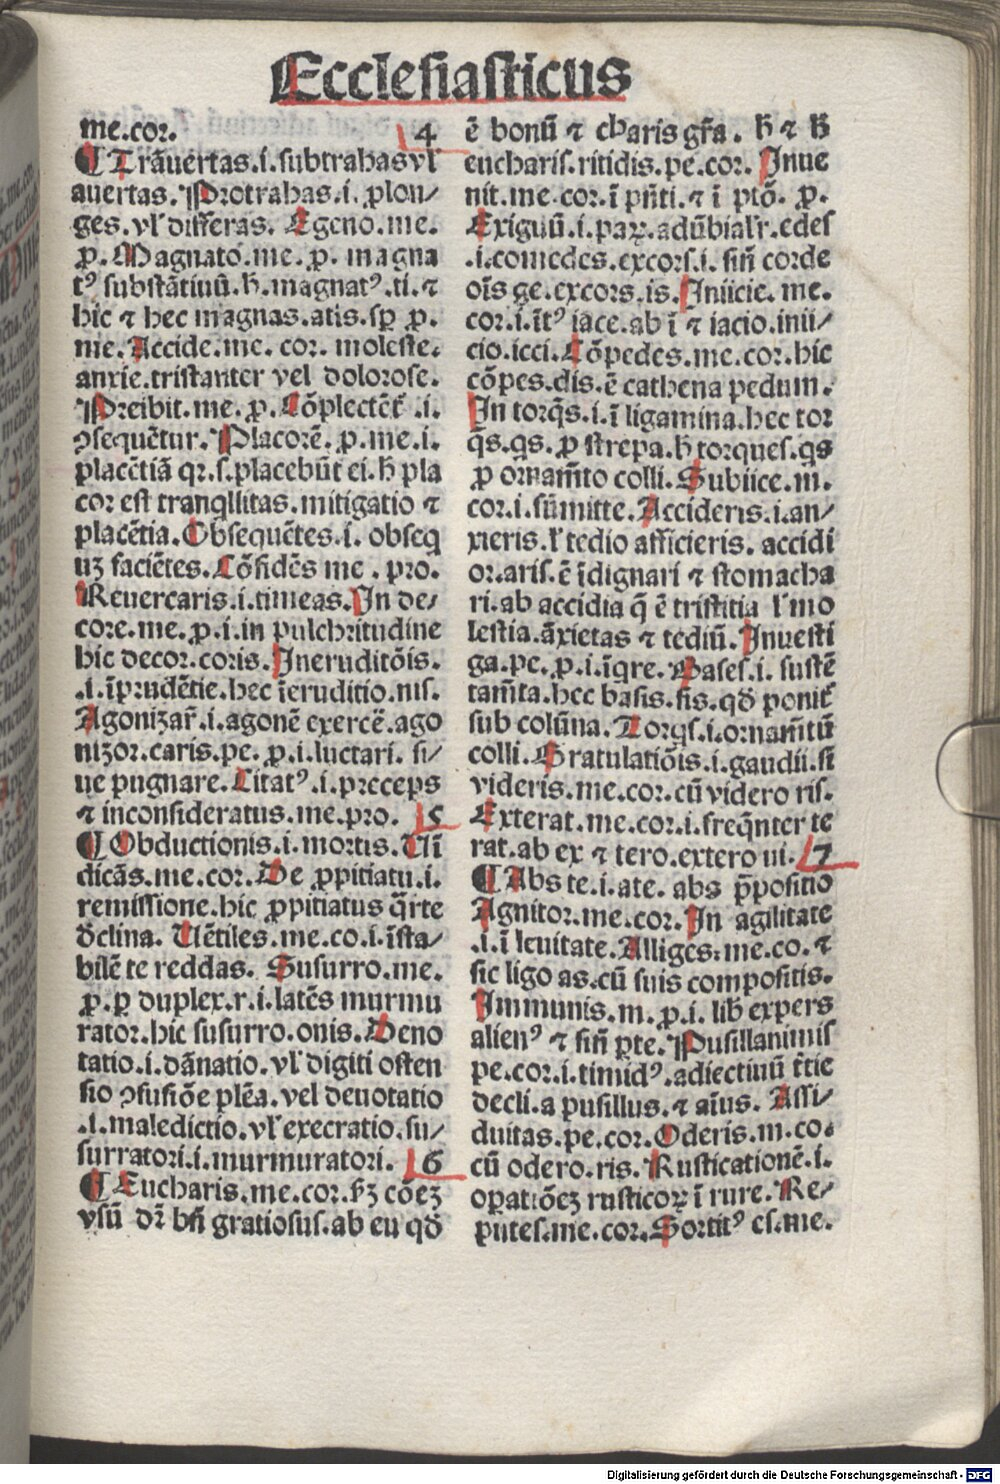 Ecclesiasticus
me.cor. 4
¶ Trãuertas.i.subtrahas vl'
auertas. Protrahas.i. ꝓlon/
ges. vl' differas. Egeno.me.
ꝓ. Magnato.me.ꝓ. magna
tꝰ substãtiuũ.h̄.magnatꝰ.ti.⁊
hic ⁊ hec magnas.atis.sꝑ ꝓ.
me. Accide.me. cor. moleste.
anxie.tristanter vel dolorose.
Preibit.me. ꝓ. Cõplectẽt̃ .i.
ꝯsequẽtur. Placorẽ. ꝓ.me.i.
placẽtiã qr.s.placebũt ei.h̄ pla
cor est tranqllitas.mitigatio ⁊
placẽtia. Obsequẽtes.i. obseq
uꝫ faciẽtes. Cõfidẽs me . pro.
Reuercaris.i.timeas. In de/
core.me. ꝓ.i.in pulchritudine
hic decor.coris. Ineruditõis.
.i.ĩprudẽtie.hec ĩeruditio.nis.
Agonizar̃.i.agonẽ exercẽ.ago
nizor.caris.pe. ꝓ.i.luctari. si/
ue pugnare. Citatꝰ.i.preceps
⁊ inconsideratus.me.pro. 5
¶ Obductionis.i.mortis. Uĩ
dicãs.me.cor. De ꝓpitiatu.i.
remissione.hic ꝓpitiatus q̃rte
d̃clina. Uẽtiles.me.co.i.ĩsta/
bilẽ te reddas. Susurro.me.
ꝓ.ꝑ duplex.r.i.latẽs murmu
rator.hic susurro.onis. Deno
tatio.i.dãnatio.vl' digiti osten
sio ꝯfusiõe plẽa.vel deuotatio
.i.maledictio.vl' execratio.su/
surratori.i.murmuratori. 6
¶ Eucharis.me.cor.hꝫ cõeꝫ
vsũ dr̃ bñ gratiosus.ab eu qd̃
ẽ bonũ ⁊ charis gr̃a. h̄ ⁊ h̄
eucharis.ritidis.pe.cor. Inue
nit.me.cor.ĩ pñti.⁊ ĩ ptõ. ꝓ.
Exiguũ.i.paꝝ.adũbialr̃.edes
.i.comedes.excors.i. siñ corde
oĩs ge.excors.is. Iniicie.me.
cor.i.ĩtꝰ iace.ab ĩ ⁊ iacio.inii/
cio.icci. Cõpedes.me.cor.hic
cõpes.dis.ẽ cathena pedum.
In torq̃s.i.ĩ ligamina.hec tor
q̃s.qs. ꝓ strepa.h̄ torques.qs
ꝓ ornam̃to colli. Subiice.m.
cor.i.sũmitte. Accideris.i.an/
xieris.l' tedio afficieris. accidi
or.aris.ẽ ĩdignari ⁊ stomacha
ri.ab accidia q̃ ẽ tristitia l' mo
lestia.ãxietas ⁊ tediũ. Inuesti
ga.pe. ꝓ.i.ĩqre. Bases.i. sustẽ
tam̃ta.hec basis.sis.qd̃ ponit̃
sub colũna. Torqs.i.ornam̃tũ
colli. Gratulatiõis.i.gaudii.si
videris.me.cor.cũ videro ris.
Exterat.me.cor.i.freq̃nter te
rat.ab ex ⁊ tero.extero ui. 7
¶ Abs te.i.ate. abs p̃positio
Agnitor.me.cor. In agilitate
.i.ĩ leuitate. Alliges.me.co. ⁊
sic ligo as.cũ suis compositis.
Immunis.m. ꝓ.i. lib expers
alienꝰ ⁊ siñ ꝑte. Pusillanimis
pe.cor.i.timidꝰ.adiectiuũ t̃tie
decli.a pusillus.⁊ aĩus. Assi/
duitas.pe.cor. Oderis.m.co.
cũ odero.ris. Rusticationẽ.i.
oꝑatiõeꝫ rusticoꝝ ĩ rure. Re/
putes.me.cor. Sortitꝰ es.me.
Digitalisierung gefördert durch die Deutsche Forschungsgemeinschaft - DFG